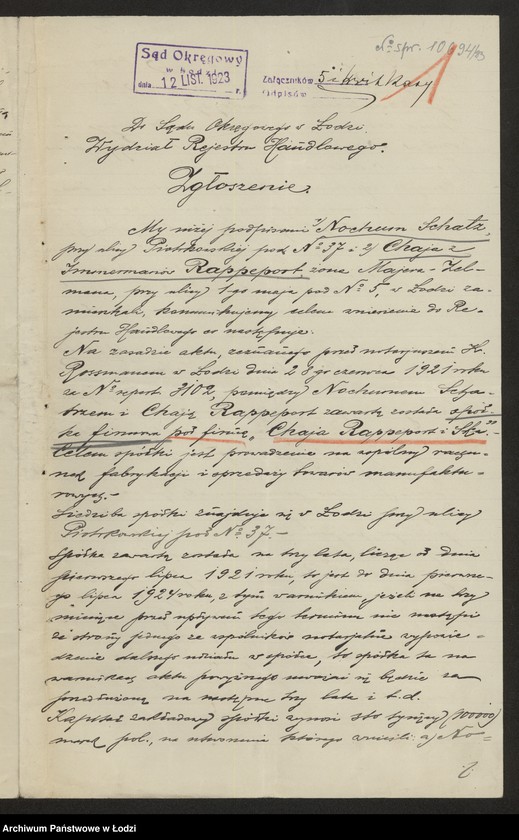 № spr. 10994/23
Sąd Okręgowy
w Łodzi
dnia 12 LIST. 1923 r.
Załączników 5 i kwit kasy
Odpisów
1
Do Sądu Okręgowego w Łodzi.
Wydział Rejestru Handlowego.
Zgłoszenie.
My niżej podpisani 1/ Nochum Schatz,
przy ulicy Piotrkowskiej pod № 37 i 2/ Chaja z
Rappeport, żona Majera-Zel-
mana, przy ulicy 1-go maja pod № 5, w Łodzi za-
mieszkali, komunikujemy celem wniesienia do Re-
jestru Handlowego co następuje:
Na zasadzie aktu, zeznanego przed notarjuszem H.
Rossmanem w Łodzi dnia 28 czerwca 1921 roku
za № repert. 3102, pomiędzy Nochumem Scha-
tzem i Chają Rappeport zawartą została spół-
ka firmowa pod firmą „Chaja Rappeport i Ska"
Celem spółki jest prowadzenie na wspólny rachu-
nek fabrykacji i sprzedaży towarów manufaktu-
rowych.-
Siedziba spółki znajduje się w Łodzi przy ulicy
Piotrkowskiej pod № 37.-
Spółka zawarta została na trzy lata, licząc od dnia
pierwszego lipca 1921 roku, to jest do dnia pierwsze-
go lipca 1924 roku, z tym warunkiem, jeżeli na trzy
miesiące przed upływem tego terminu nie nastąpi
ze strony jednego ze wspólników notarjalne wypowie-
dzenie dalszego udziału w spółce, to spółka ta na
warunkach aktu powyższego uważać się będzie za
przedłużoną na następne trzy lata i t.d.
Kapitał zakładowy spółki wynosi sto tysięcy (100000)
marek pol., na utworzenie którego wnieśli: a) No-
Archiwum Państwowe w Łodzi